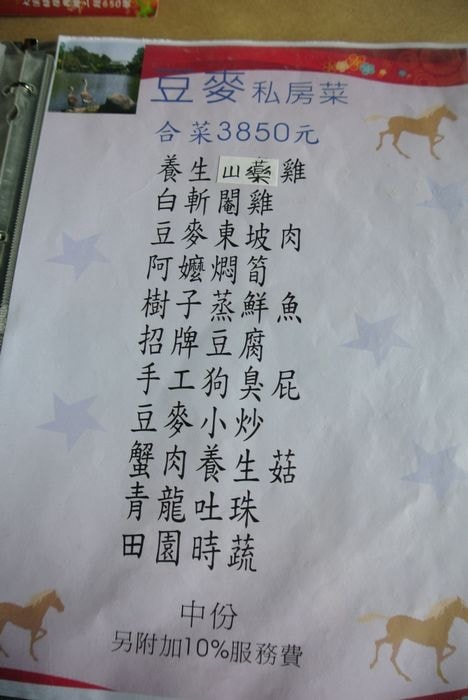 豆麥私房菜
合菜3850元
養生山藥雞
白斬閹雞
豆麥東坡肉
阿嬤燜筍
樹子蒸鮮魚
招牌豆腐
手工狗臭屁
豆麥小炒
蟹肉養生菇
青龍吐珠
田園時蔬
中份
另附加10%服務費